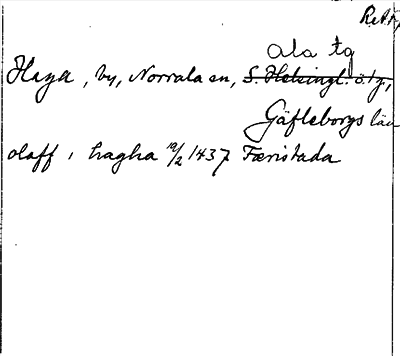 Ala tg
Haga, by, Norrala sn, S. Helsingl. ö. tg.,
Gäfleborgs län
olaff i hagha 10/2 1437 Færistada